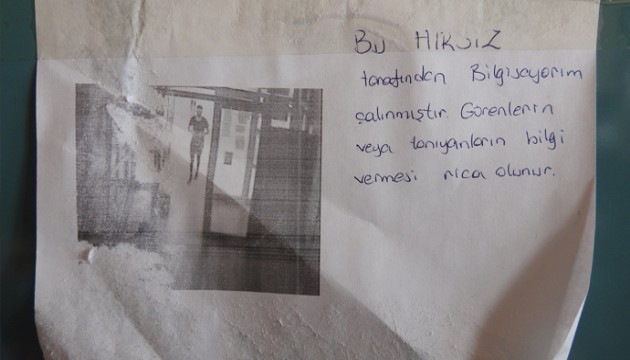 Bu HIRSIZ
tarafından Bilgisayarım
çalınmıştır. Görenlerin
veya tanıyanların bilgi
vermesi rica olunur.